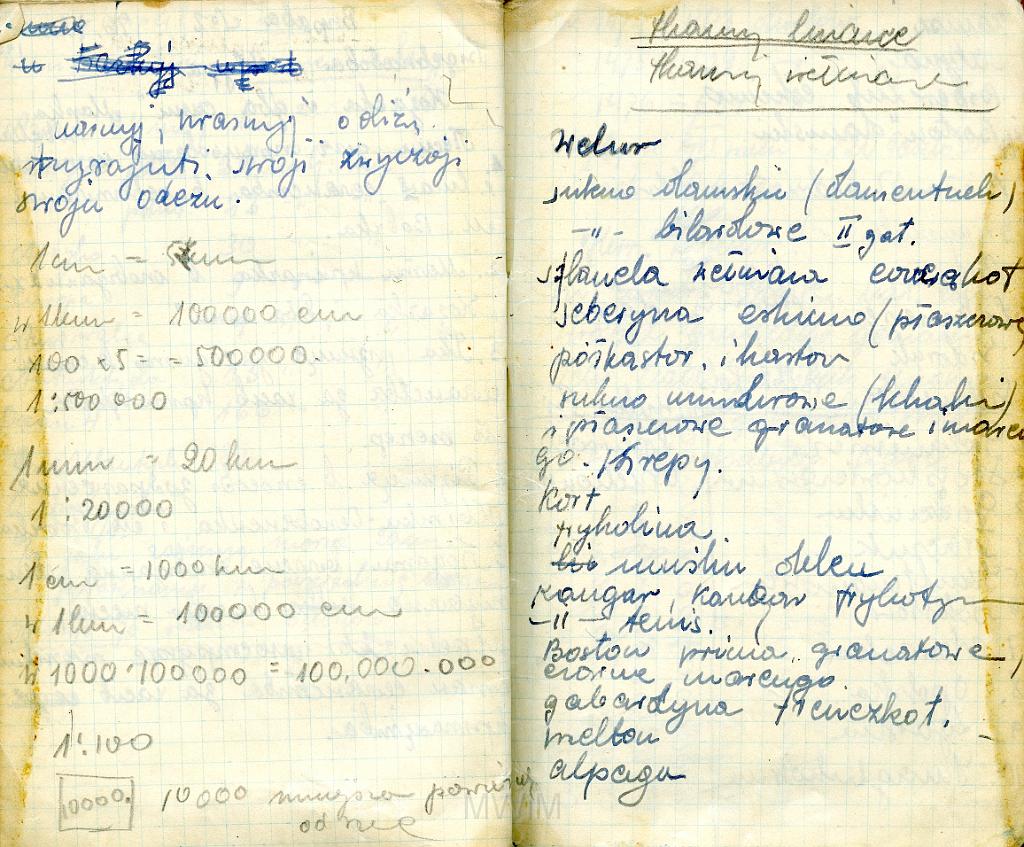 wasnyj, krasnyj odizi
swoji zwyczoji
swoju odezu.
1 cm = 5 km
w 1 km = 100000 cm
100 x 5 = = 500000.
1:500 000
1 mm = 20 km
1 : 20000
1 cm = 1000 km
w 1 km = 100000 cm
w 1000 · 100000 = 100,000.000
1:100
10000. 10000 mniejsza
od niej
tkaniny lniane
tkaniny wełniane
welur
sukno damskie (damentuch)
-"- bilardowe II gat.
flanela wełniana
szberyna eskimo (płaszczowe
półkastor. i kastor
sukno mundurowe (khaki)
i płaszczowe granatowe i maren
go. i krepy.
Kort
trykolina
Kangar, Kangar trykotyn
-"- tenis.
Boston prima, granatowe,
czarne, marengo
gabardyna trenczkot.
melton
alpaga
MWM